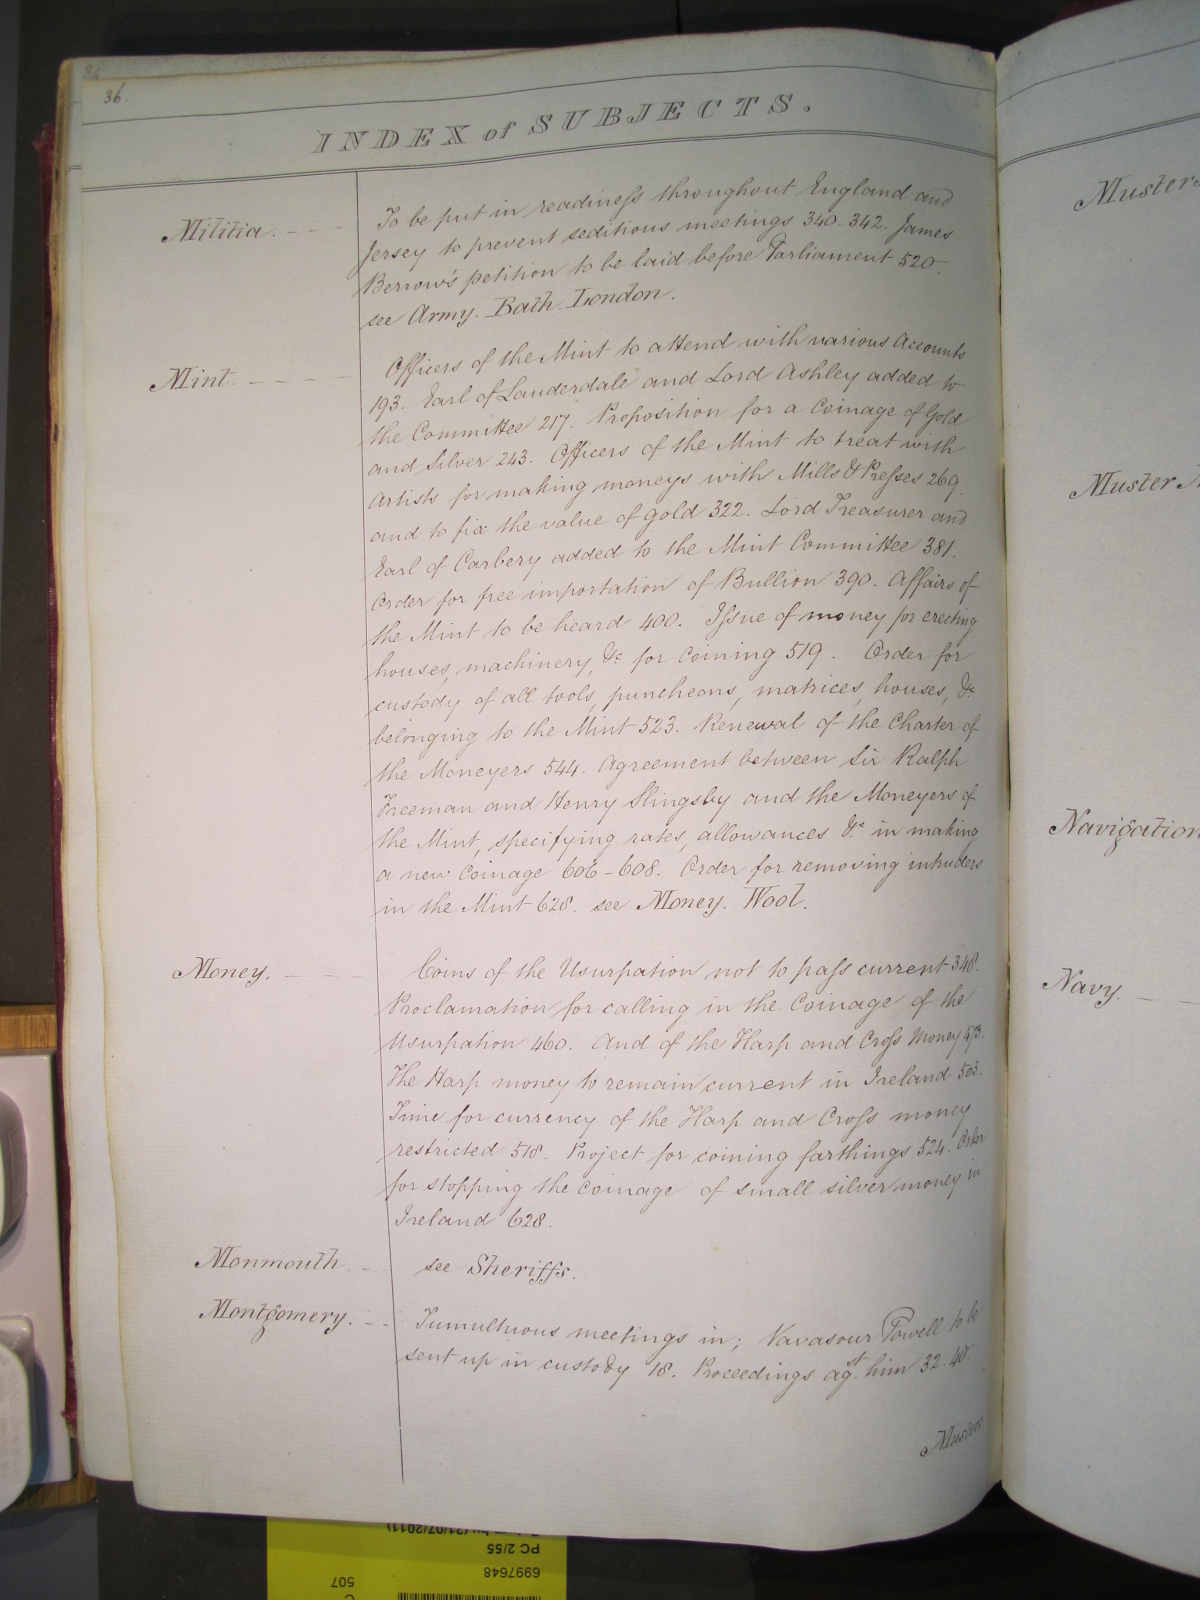 34
36.
INDEX of SUBJECTS.
Militia. - - -
To be put in readineſs throughout England and
Jersey to prevent seditious meetings 340. 342. James
Berrow's petition to be laid before Parliament 520.
see Army. Bath. London.
Mint. - - - -
Officers of the Mint to attend with various Accounts
193. Earl of Lauderdale and Lord Ashley added to
the Committee 217. Proposition for a Coinage of Gold
and Silver 243. Officers of the Mint to treat with
Artists for making moneys with Mills & Preſses 269.
and to fix the value of Gold 322. Lord Treasurer and
Earl of Carbery added to the Mint Committee 381.
Order for free importation of Bullion 390. Affairs of
the Mint to be heard 400. Iſsue of money for erecting
houses, machinery, &c for Coining 519. Order for
custody of all tools, puncheons, matrices, houses, &c
belonging to the Mint 523. Renewal of the Charter of
the Moneyers 544. Agreement between Sir Ralph
Freeman and Henry Slingsby and the Moneyers of
the Mint, specifying rates, allowances &c in making
a new Coinage 606-608. Order for removing intruders
in the Mint 628. see Money. Wool.
Money. - - -
Coins of the Usurpation not to paſs current 348.
Proclamation for calling in the Coinage of the
Usurpation 460. And of the Harp and Croſs Money 473.
The Harp money to remain current in Ireland 503.
Time for currency of the Harp and Croſs money
restricted 518. Project for coining farthings 524. Order
for stopping the coinage of small silver money in
Ireland 628.
Monmouth. - -
see Sheriffs.
Montgomery. - -
Tumultuous meetings in; Vavasour Powell to be
sent up in custody 18. Proceedings agst. him 32. 48.
Muster.
Muster
Muster
Navigation
Navy. - -
6997648
PC 2/55
507